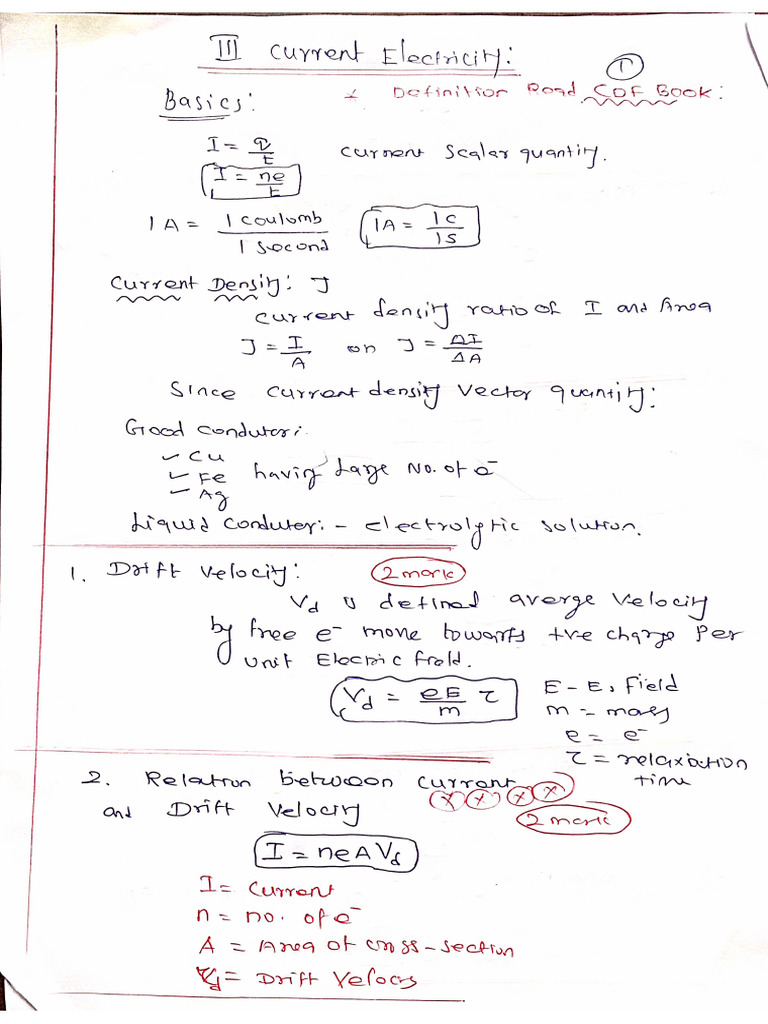 III Current Electricity:
1
* Definition Read COF Book:
Basics:
I = q/t current scalar quantity.
I = ne/t
1 A = 1 coulomb / 1 second 1A = 1c/1s
Current Density: J
current density ratio of I and Area
J = I/A or J = ΔI/ΔA
Since current density vector quantity:
Good conduter:
✓ Cu
✓ Fe having Large No. of e⁻
✓ Ag
Liquid conduter: - electrolytic solution.
1. Drift Velocity: 2 mark
Vd is defined averge velocity
by free e⁻ move towards +ve charge Per
unit Electric field.
Vd = eE/m τ
E - E, Field
m = mass
e = e⁻
τ = relaxiation
time
2. Relation between current
and Drift Velocity
x x x x
2 mark
I = neAVd
I = Current
n = no. of e⁻
A = Area of cross-section
Vd = Drift Velocy